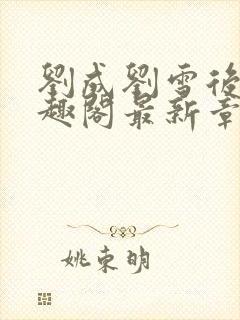 劉成劉雪後
趣閣最新章
姚束明